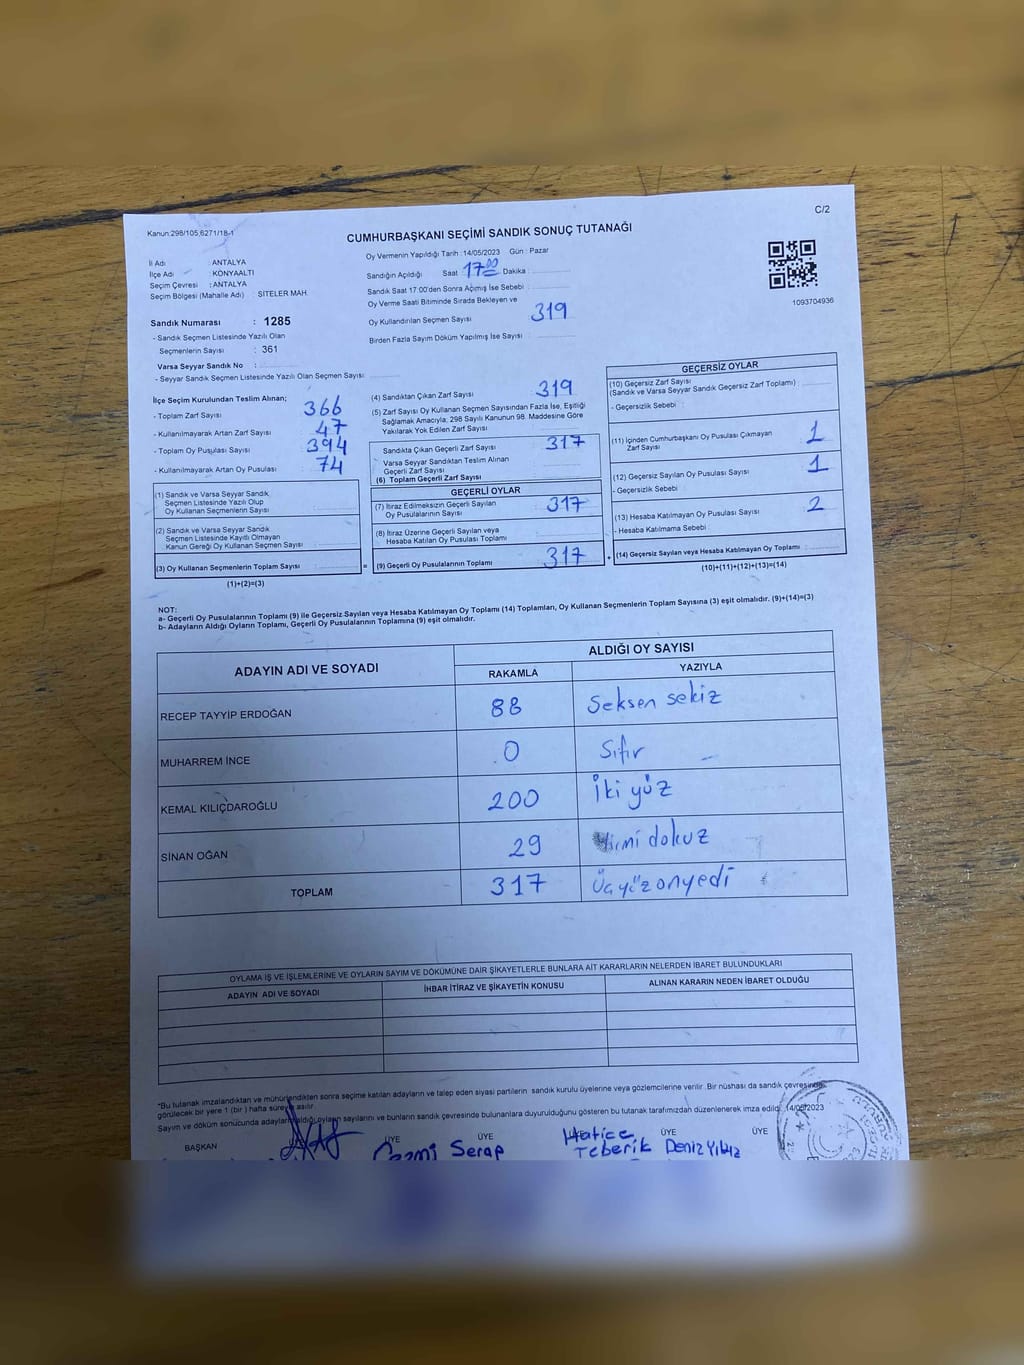 C/2
Kanun:298/105,6271/18-1
CUMHURBAŞKANI SEÇİMİ SANDIK SONUÇ TUTANAĞI
İl Adı : ANTALYA
İlçe Adı : KONYAALTI
Seçim Çevresi : ANTALYA
Seçim Bölgesi (Mahalle Adı) : SİTELER MAH.
Sandık Numarası : 1285
- Sandık Seçmen Listesinde Yazılı Olan
Seçmenlerin Sayısı : 361
Varsa Seyyar Sandık No :
- Seyyar Sandık Seçmen Listesinde Yazılı Olan Seçmen Sayısı
Oy Vermenin Yapıldığı Tarih : 14/05/2023 Gün : Pazar
Sandığın Açıldığı Saat 17:00 Dakika :
Sandık Saat 17:00'den Sonra Açılmış İse Sebebi :
Oy Verme Saati Bitiminde Sırada Bekleyen ve
Oy Kullandırılan Seçmen Sayısı 319
Birden Fazla Sayım Döküm Yapılmış İse Sayısı
1093704936
İlçe Seçim Kurulundan Teslim Alınan;
- Toplam Zarf Sayısı 366
- Kullanılmayarak Artan Zarf Sayısı 47
- Toplam Oy Pusulası Sayısı 394
- Kullanılmayarak Artan Oy Pusulası 74
(1) Sandık ve Varsa Seyyar Sandık
Seçmen Listesinde Yazılı Olup
Oy Kullanan Seçmenlerin Sayısı :
(2) Sandık ve Varsa Seyyar Sandık
Seçmen Listesinde Kayıtlı Olmayan
Kanun Gereği Oy Kullanan Seçmen Sayısı :
(3) Oy Kullanan Seçmenlerin Toplam Sayısı :
(1)+(2)=(3)
(4) Sandıktan Çıkan Zarf Sayısı 319
(5) Zarf Sayısı Oy Kullanan Seçmen Sayısından Fazla İse, Eşitliği
Sağlamak Amacıyla; 298 Sayılı Kanunun 98. Maddesine Göre
Yakılarak Yok Edilen Zarf Sayısı
Sandıkta Çıkan Geçerli Zarf Sayısı 317
Varsa Seyyar Sandıktan Teslim Alınan
Geçerli Zarf Sayısı
(6) Toplam Geçerli Zarf Sayısı
GEÇERLİ OYLAR
(7) İtiraz Edilmeksizin Geçerli Sayılan
Oy Pusulalarının Sayısı 317
(8) İtiraz Üzerine Geçerli Sayılan veya
Hesaba Katılan Oy Pusulası Toplamı
(9) Geçerli Oy Pusulalarının Toplamı 317
GEÇERSİZ OYLAR
(10) Geçersiz Zarf Sayısı
(Sandık ve Varsa Seyyar Sandık Geçersiz Zarf Toplamı)
- Geçersizlik Sebebi :
(11) İçinden Cumhurbaşkanı Oy Pusulası Çıkmayan
Zarf Sayısı 1
(12) Geçersiz Sayılan Oy Pusulası Sayısı 1
- Geçersizlik Sebebi
(13) Hesaba Katılmayan Oy Pusulası Sayısı 2
- Hesaba Katılmama Sebebi :
(14) Geçersiz Sayılan veya Hesaba Katılmayan Oy Toplamı
(10)+(11)+(12)+(13)=(14)
NOT:
a- Geçerli Oy Pusulalarının Toplamı (9) ile Geçersiz Sayılan veya Hesaba Katılmayan Oy Toplamı (14) Toplamları, Oy Kullanan Seçmenlerin Toplam Sayısına (3) eşit olmalıdır. (9)+(14)=(3)
b- Adayların Aldığı Oyların Toplamı, Geçerli Oy Pusulalarının Toplamına (9) eşit olmalıdır.
ADAYIN ADI VE SOYADI
ALDIĞI OY SAYISI
RAKAMLA YAZIYLA
RECEP TAYYİP ERDOĞAN 88 Seksen sekiz
MUHARREM İNCE 0 Sıfır
KEMAL KILIÇDAROĞLU 200 İki yüz
SİNAN OĞAN 29 Yirmi dokuz
TOPLAM 317 Üçyüzonyedi
OYLAMA İŞ VE İŞLEMLERİNE VE OYLARIN SAYIM VE DÖKÜMÜNE DAİR ŞİKAYETLERLE BUNLARA AİT KARARLARIN NELERDEN İBARET BULUNDUKLARI
ADAYIN ADI VE SOYADI İHBAR İTİRAZ VE ŞİKAYETİN KONUSU ALINAN KARARIN NEDEN İBARET OLDUĞU
*Bu tutanak imzalandıktan ve mühürlendikten sonra seçime katılan adayların ve talep eden siyasi partilerin sandık kurulu üyelerine veya gözlemcilerine verilir. Bir nüshası da sandık çevresinde
görülecek bir yere 1 (bir) hafta süreyle asılır.
Sayım ve döküm sonucunda adayların aldığı oyların sayılarını ve bunların sandık çevresinde bulunanlara duyurulduğunu gösteren bu tutanak tarafımızdan düzenlenerek imza edildi. 14/05/2023
BAŞKAN ÜYE ÜYE ÜYE ÜYE
Serap
Hatice
Teberik Deniz Yıldız